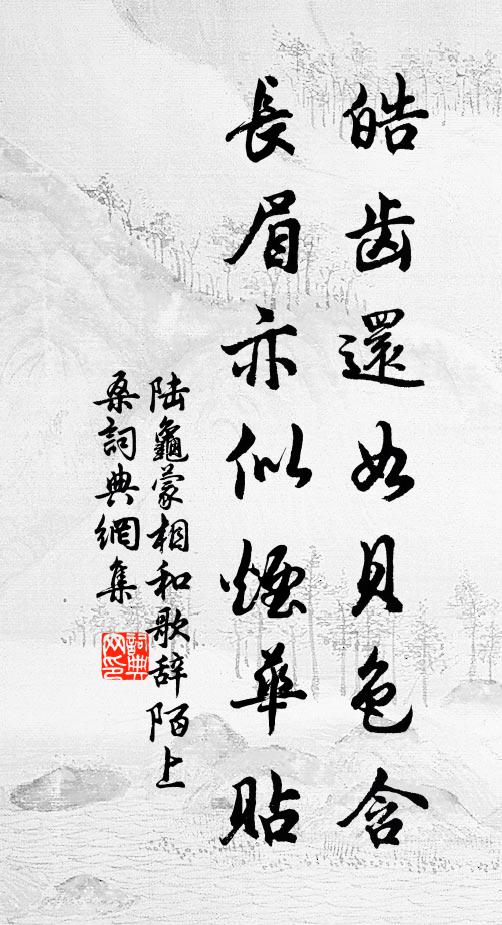 皓齒還如貝色含
長眉亦似煙華貼
陆龜蒙相和歌辞陌上
桑詞典網集
詞典
网印